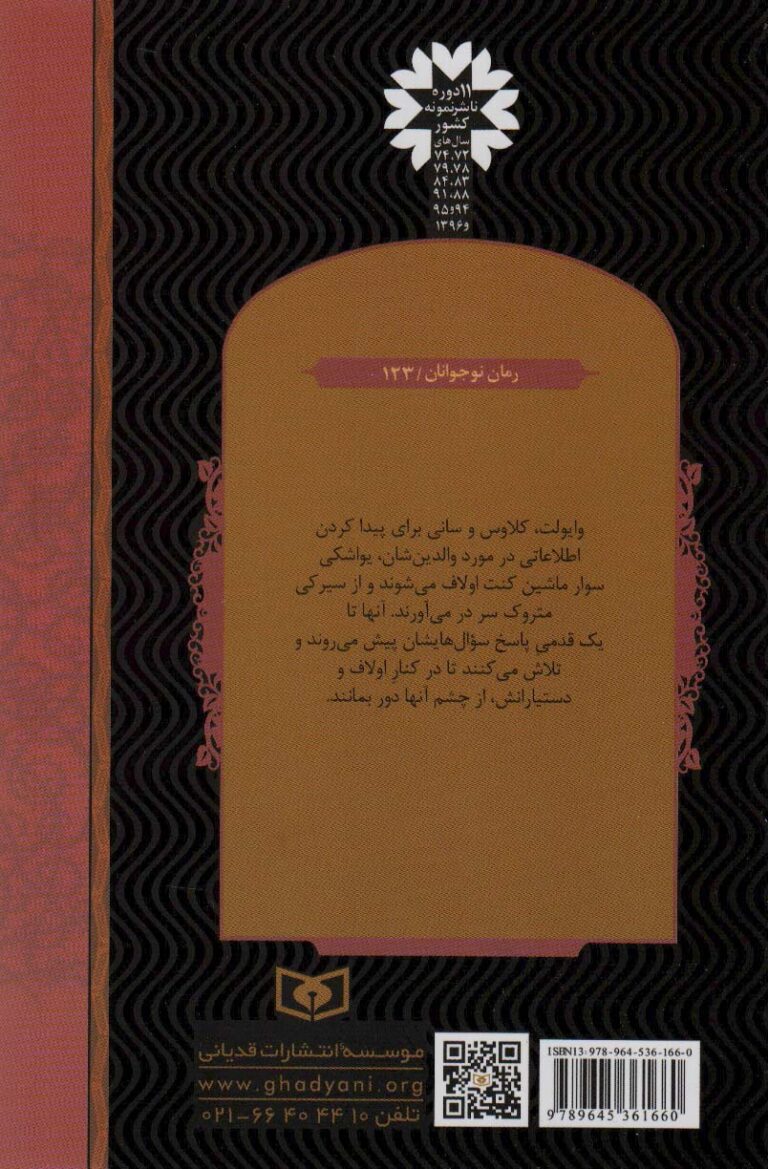 ۱۱ دوره
ناشر نمونه
کشور
سال‌های
۷۴،۷۲
۷۹،۷۸
۸۴،۸۳
۹۱،۸۸
۹۴و۹۵
و۱۳۹۶
رمان نوجوانان / ۱۲۳
وایولت، کلاوس و سانی برای پیدا کردن
اطلاعاتی در مورد والدین‌شان، یواشکی
سوار ماشین کنت اولاف می‌شوند و از سیرکی
متروک سر در می‌آورند. آنها تا
یک قدمیِ پاسخ سؤال‌هایشان پیش می‌روند و
تلاش می‌کنند تا در کنارِ اولاف و
دستیارانش، از چشم آنها دور بمانند.
موسسهٔ انتشارات قدیانی
www.ghadyani.org
تلفن ۱۰ ۴۴ ۴۰ ۶۶-۰۲۱
ISBN13: 978-964-536-166-0
9 789645 361660